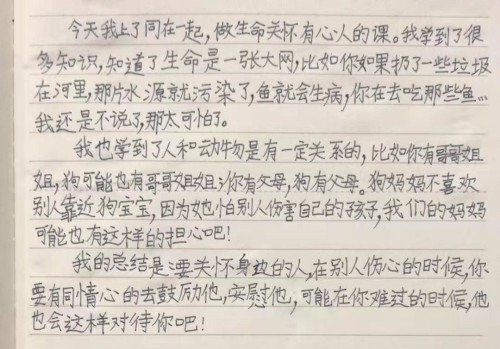 今天我上了同在一起，做生命关怀有心人的课。我学到了很
多知识，知道了生命是一张大网，比如你如果扔了一些垃圾
在河里，那片水源就污染了，鱼就会生病，你在去吃那些鱼…
我还是不说了，那太可怕了。
我也学到了人和动物是有一定关系的，比如你有哥哥姐
姐，狗可能也有哥哥姐姐；你有父母，狗有父母。狗妈妈不喜欢
别人靠近狗宝宝，因为她怕别人伤害自己的孩子，我们的妈妈
可能也有这样的担心吧！
我的总结是：要关怀身边的人，在别人伤心的时候，你
要有同情心的去鼓厉他，安慰他，可能在你难过的时候，他
也会这样对待你吧！